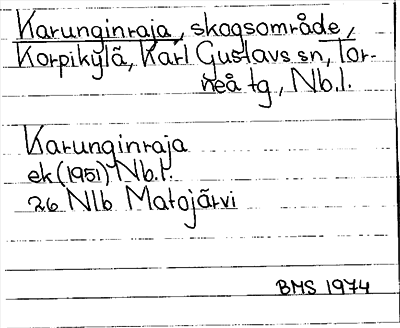 Karunginraja, skogsområde,
Korpikylä, Karl Gustavs sn, Tor-
neå tg., Nb.l.
Karunginraja
ek (1951) Nb.l.
26 Nlb Matojärvi
BMS 1974